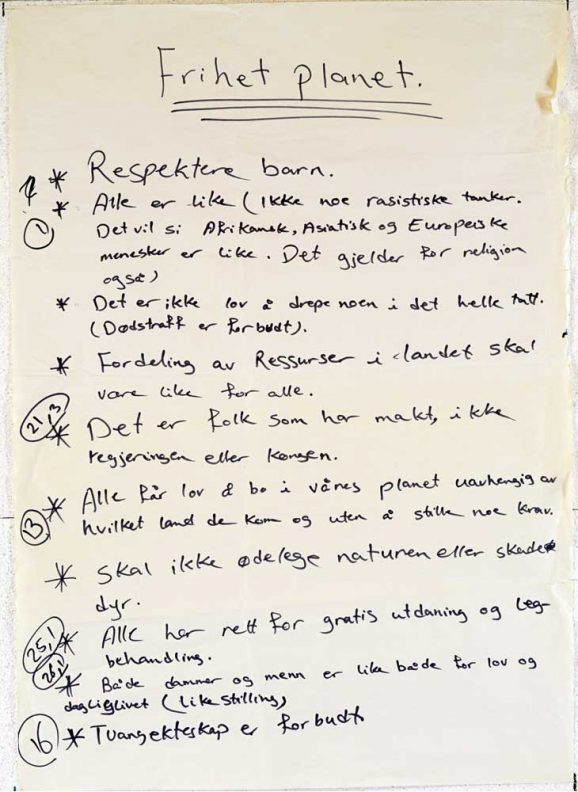 Frihet planet.
* Respektere barn.
* Alle er like (Ikke noe rasistiske tanker.
1
Det vil si Afrikansk, Asiatisk og Europeiske
menesker er like. Det gjelder for religion
også)
* Det er ikke lov å drepe noen i det helle tatt.
(Dødstraff er forbudt).
* Fordeling av Ressurser i landet skal
vare like for alle.
21,3
* Det er folk som har makt, ikke
regjeringen eller kongen.
* Alle får lov å bo i vånes planet uavhengig av
13
hvilket land de kom og uten å stille noe krav.
* Skal ikke ødelege naturen eller skade
dyr.
25,1
* Alle har rett for gratis utdaning og leg-
behandling.
26,1
* Både dammer og menn er like både for lov og
dagligLivet (Like stilling)
16
* Tvangekteskap er forbudt